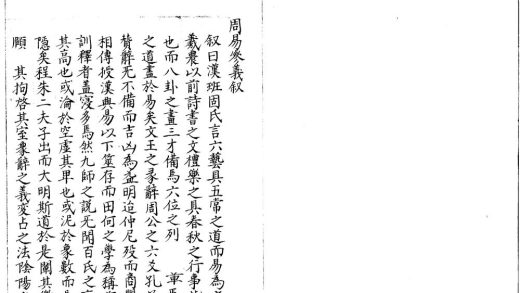 周易參義叙
叙曰漢班固氏言六藝具五常之道而易為
羲農以前詩書之文禮樂之具春秋之行事
也而八卦之畫三才備焉六位之列 章
之道盡於易矣文王之彖辭周公之六爻孔
贊辭无不備而吉凶為益明迨仲尼歿而商
相傳授漢興易以卜筮存而田何之學為稱
訓釋者蓋寖多焉然九師之説无聞百氏之
其高也或淪於空虛其卑也或泥於象數而
隠矣程朱二夫子出而大明斯道於是闡其
願 其拘啓其室象辭之義变占之法陰陽